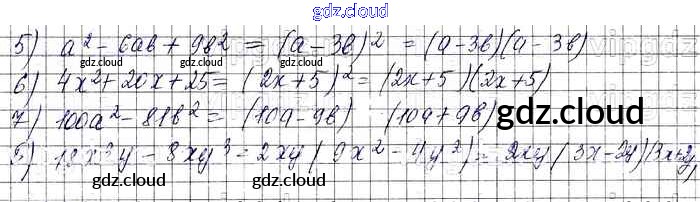 gdz.cloud
5) a² - 6ав + 9в² = (а - 3в)² = (а - 3в)(а - 3в)
6) 4x² + 20x + 25 = (2x + 5)² = (2x + 5)(2x + 5)
7) 100а² - 81в² = (10а - 9в) (10а + 9в)
gdz.cloud
5) 18x³y - 8xy³ = 2xy(9x² - 4y²) = 2xy(3x - 2y)(3x + 2y)
gdz.cloud gdz.cloud